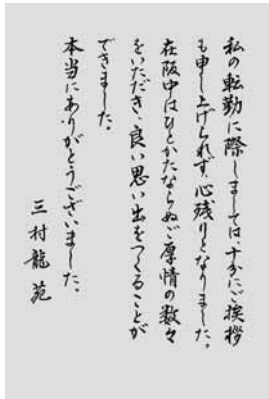 私の転勤に際しましては、十分にご挨拶
も申し上げられず、心残りとなりました。
在阪中はひとかたならぬご厚情の数々
をいただき、良い思い出をつくることが
できました。
本当にありがとうございました。
三村龍苑